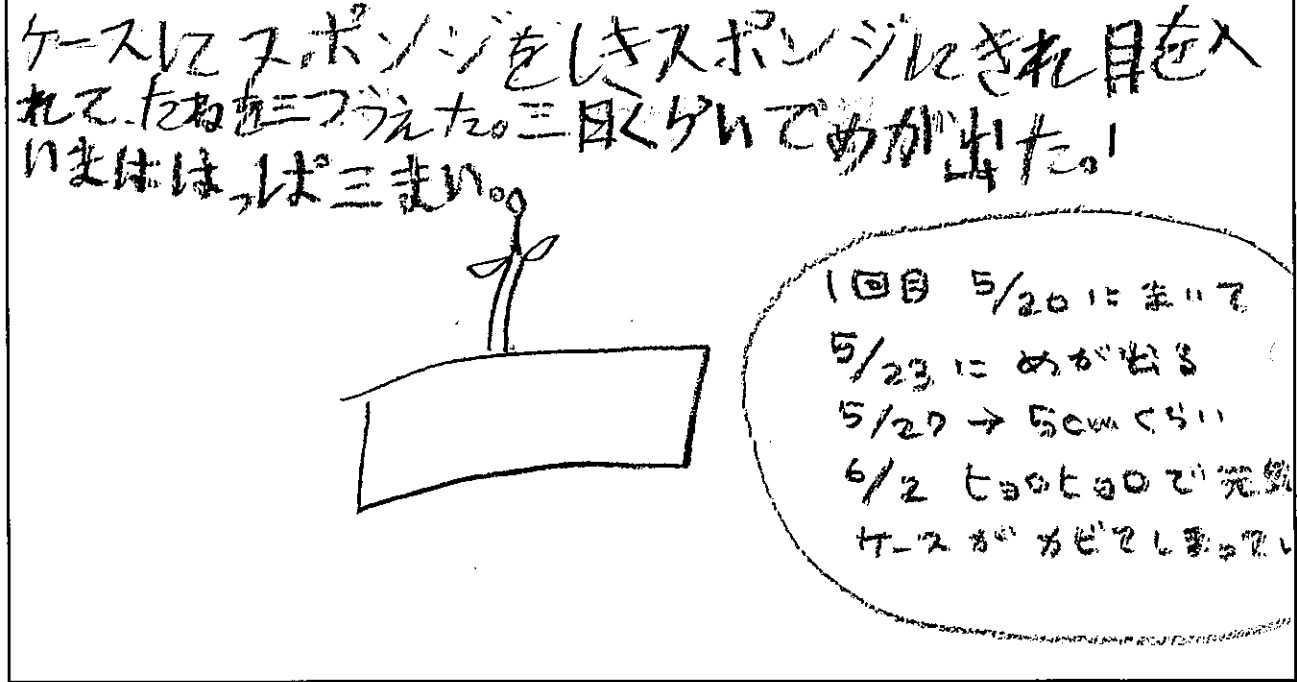 ケースにスポンジをしきスポンジにきれ目を入
れて、たねを三つうえた。三日くらいでめが出た。!
いまははっぱ三まい。
1回目 5/20にまいて
5/23にめが出る
5/27→5cmくらい
6/2 ヒョロヒョロで元気
ケースがカビてしまってい